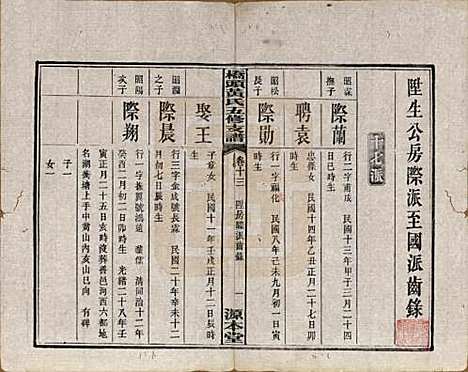 陞生公房際派至國派齒錄
十七派
昭霖撫子
際蘭
行一字甫成 民國十三年甲子三月二十四日巳時生
聘袁
忠孫女 民國十四年乙丑正月二十七日卯時生
昭松長子
際勛
行一字福化 民國八年己未九月初一日寅時生
橋頭黃氏五修支譜
卷十三
陞房際派齒錄
一
源本堂
娶王
子章女 民國十一年壬戌三月二十五日辰時生
昭瀛之子
際晨
行三字金成號長霖 民國二十年辛未十二月初七日辰時生
昭陽次子
際翔
行一字振鵬號鴻遠 業儒 清同治十二年癸酉二月初二日卯時生 光緒二十八年壬寅正月二十五日亥時歿葬善邑河西六都地名湖蕪塘上手中黃山內亥山巳向 有碑
子一
女一